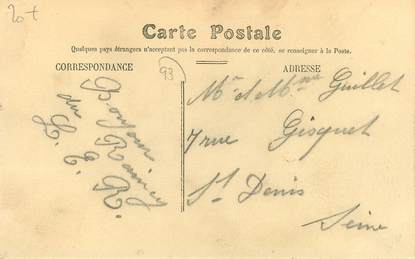 20+
Carte Postale
Quelques pays étrangers n'acceptant pas la correspondance de ce côté, se renseigner à la Poste.
CORRESPONDANCE
93
ADRESSE
Bonjour
du Raincy
L. E. R.
Mr et Mme Guillet
7 rue Gisquet
St Denis
Seine